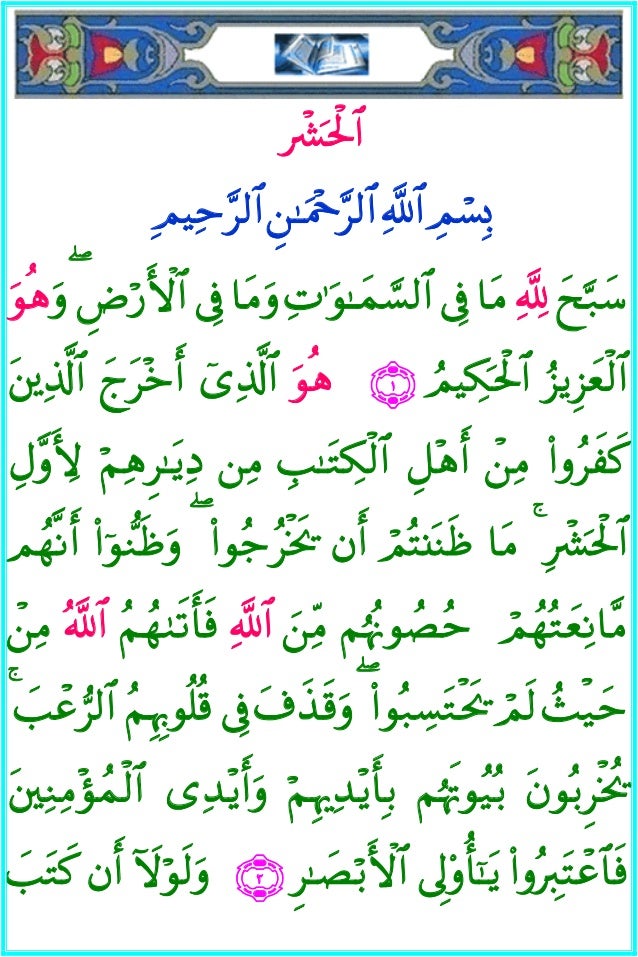 ٱلْحَشْر
بِسْمِ ٱللَّهِ ٱلرَّحْمَـٰنِ ٱلرَّحِيمِ
سَبَّحَ لِلَّهِ مَا فِى ٱلسَّمَـٰوَٰتِ وَمَا فِى ٱلْأَرْضِ ۖ وَهُوَ
ٱلْعَزِيزُ ٱلْحَكِيمُ ١ هُوَ ٱلَّذِىٓ أَخْرَجَ ٱلَّذِينَ
كَفَرُوا۟ مِنْ أَهْلِ ٱلْكِتَـٰبِ مِن دِيَـٰرِهِمْ لِأَوَّلِ
ٱلْحَشْرِ ۚ مَا ظَنَنتُمْ أَن يَخْرُجُوا۟ ۖ وَظَنُّوٓا۟ أَنَّهُم
مَّانِعَتُهُمْ حُصُونُهُم مِّنَ ٱللَّهِ فَأَتَىٰهُمُ ٱللَّهُ مِنْ
حَيْثُ لَمْ يَحْتَسِبُوا۟ ۖ وَقَذَفَ فِى قُلُوبِهِمُ ٱلرُّعْبَ ۚ
يُخْرِبُونَ بُيُوتَهُم بِأَيْدِيهِمْ وَأَيْدِى ٱلْمُؤْمِنِينَ
فَٱعْتَبِرُوا۟ يَـٰٓأُو۟لِى ٱلْأَبْصَـٰرِ ٢ وَلَوْلَآ أَن كَتَبَ